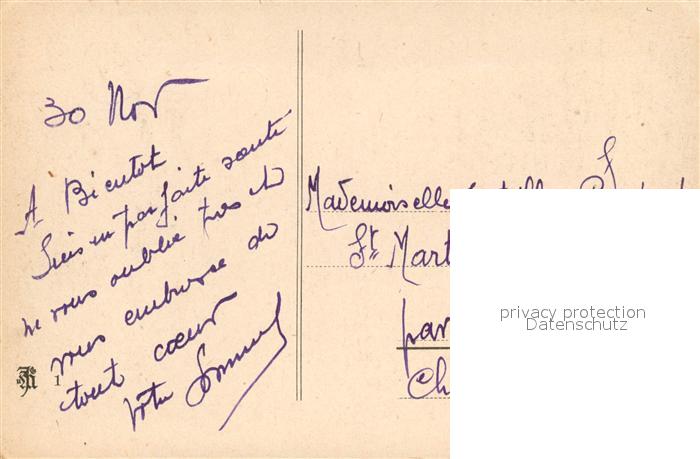 30 Nov
A Bientot
Suis en parfaite santé
ne vous oublie pas et
vous embrasse de
tout cœur
votre
Mademoiselle
St Mart
par
Ch
privacy protection
Datenschutz
1